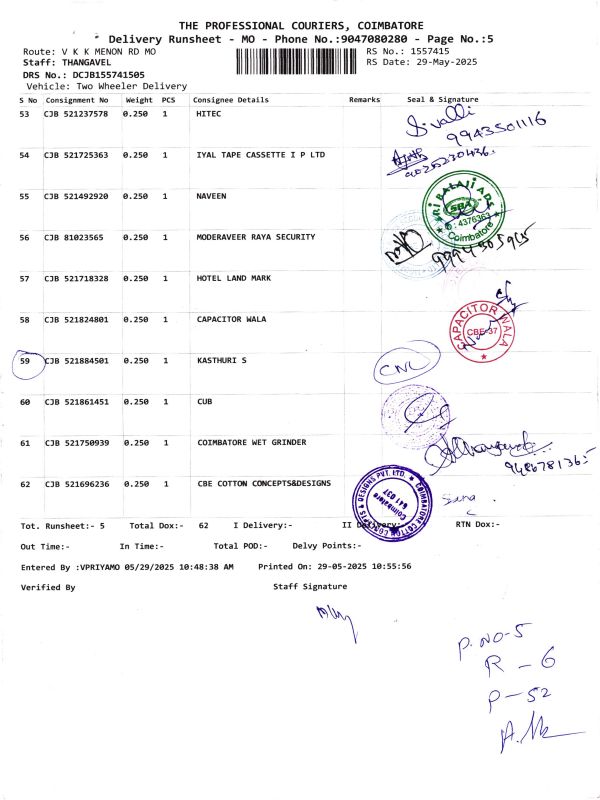 THE PROFESSIONAL COURIERS, COIMBATORE
Delivery Runsheet - MO - Phone No.:9047080280 - Page No.:5
Route: V K K MENON RD MO RS No.: 1557415
Staff: THANGAVEL RS Date: 29-May-2025
DRS No.: DCJB155741505
Vehicle: Two Wheeler Delivery
S No Consignment No Weight PCS Consignee Details Remarks Seal & Signature
53 CJB 521237578 0.250 1 HITEC
S. valli
9943501116
54 CJB 521725363 0.250 1 IYAL TAPE CASSETTE I P LTD
55 CJB 521492920 0.250 1 NAVEEN
SRI BALAJI ADS
SBA
: 4376363
Coimbatore
56 CJB 81023565 0.250 1 MODERAVEER RAYA SECURITY
57 CJB 521718328 0.250 1 HOTEL LAND MARK
58 CJB 521824801 0.250 1 CAPACITOR WALA
CAPACITOR WALA
CBE-37
59 CJB 521884501 0.250 1 KASTHURI S
CNL
60 CJB 521861451 0.250 1 CUB
61 CJB 521750939 0.250 1 COIMBATORE WET GRINDER
9486781365
62 CJB 521696236 0.250 1 CBE COTTON CONCEPTS&DESIGNS
COIMBATORE COTTON CONCEPTS & DESIGNS PVT. LTD.
Coimbatore
641 037
Tot. Runsheet:- 5 Total Dox:- 62 I Delivery:- II Delivery:- RTN Dox:-
Out Time:- In Time:- Total POD:- Delvy Points:-
Entered By :VPRIYAMO 05/29/2025 10:48:38 AM Printed On: 29-05-2025 10:55:56
Verified By Staff Signature
P.NO-5
R - 6
P - 52